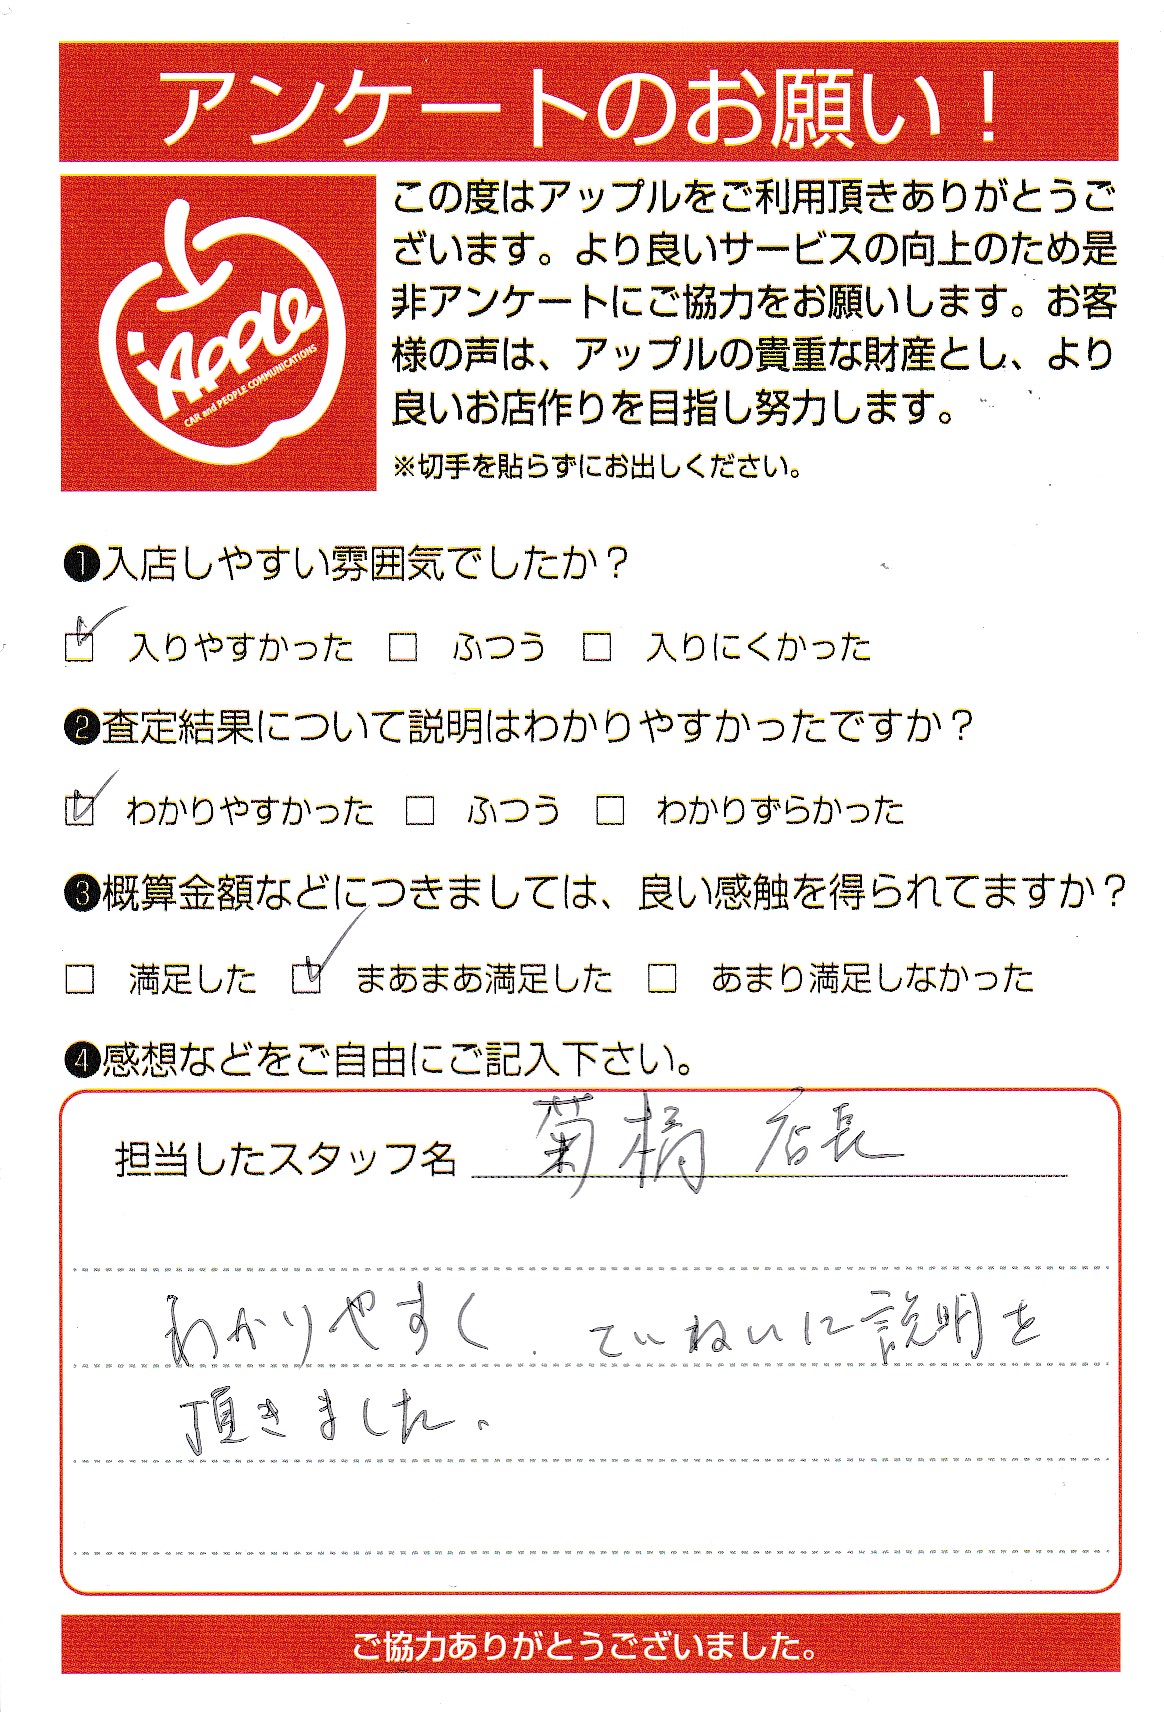 アンケートのお願い！
Apple
CAR and PEOPLE COMMUNICATIONS
この度はアップルをご利用頂きありがとうご
ざいます。より良いサービスの向上のため是
非アンケートにご協力をお願いします。お客
様の声は、アップルの貴重な財産とし、より
良いお店作りを目指し努力します。
※切手を貼らずにお出しください。
❶入店しやすい雰囲気でしたか？
☑ 入りやすかった □ ふつう □ 入りにくかった
❷査定結果について説明はわかりやすかったですか？
☑ わかりやすかった □ ふつう □ わかりずらかった
❸概算金額などにつきましては、良い感触を得られてますか？
□ 満足した ☑ まあまあ満足した □ あまり満足しなかった
❹感想などをご自由にご記入下さい。
担当したスタッフ名 菊橋 店長
わかりやすく、ていねいに説明を
頂きました。
ご協力ありがとうございました。